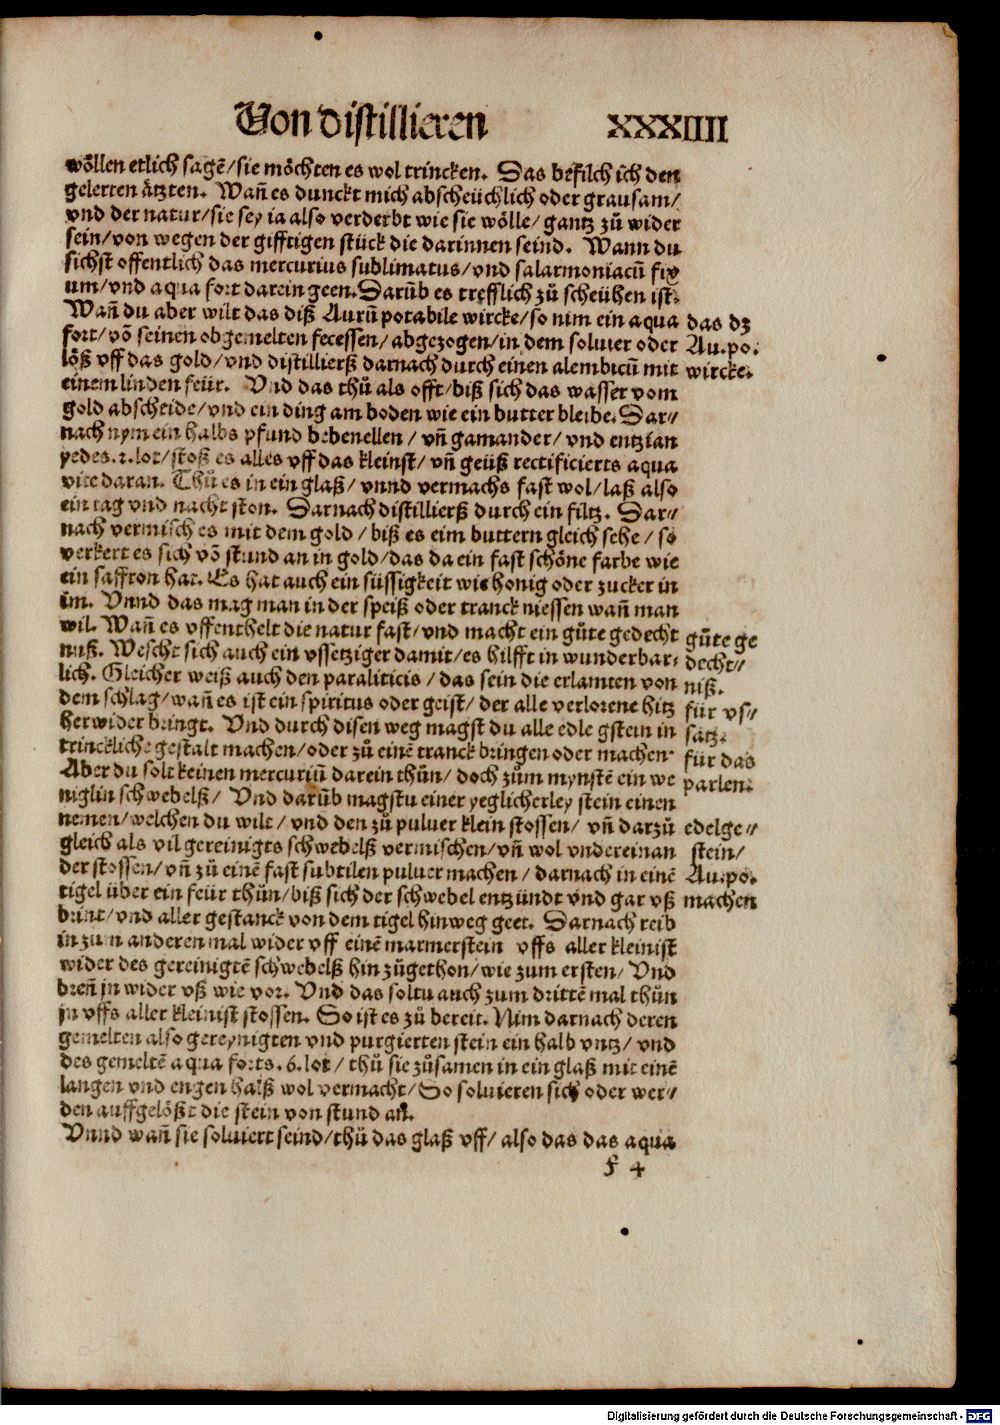 Von distillieren XXXIIII
wöllen etlich sagē/sie möchten es wol trincken. Das befilch ich den
gelerten ätzten. Wañ es dunckt mich abscheüchlich oder grausam/
vnd der natur/sie sey ia also verderbt wie sie wölle/gantz zů wider
sein/von wegen der gifftigen stück die darinnen seind. Wann du
sichst offentlich das mercurius sublimatus/vnd salarmoniacū fix
um/vnd aqua fort darein geen. Darūb es trefflich zů scheühen ist.
Wañ du aber wilt das diß Aurū potabile wircke/so nim ein aqua
fort/vō seinen obgemelten fecessen/abgezogen/in dem soluier oder
löß vff das gold/vnd distillierß darnach durch einen alembicū mit
einem linden feür. Vnd das thů als offt/biß sich das wasser vom
gold abscheide/vnd ein ding am boden wie ein butter bleibe. Dar//
nach nym ein halbs pfund bebenellen/vñ gamander/vnd entzian
yedes.2.lot/stoß es alles vff das kleinst/vñ geüß rectificierts aqua
vite daran. Thů es in ein glaß/vnnd vermachs fast wol/laß also
ein tag vnd nacht ston. Darnach distillierß durch ein filtz. Dar//
nach vermisch es mit dem gold/biß es eim buttern gleich sehe/so
verkert es sich vō stund an in gold/das da ein fast schöne farbe wie
ein saffron hat. Es hat auch ein süssigkeit wie honig oder zucker in
im. Vnnd das mag man in der speiß oder tranck niessen wañ man
wil. Wañ es vffenthelt die natur fast/vnd macht ein gůte gedecht
nuß. Wescht sich auch ein vssetziger damit/es hilfft in wunderbar:
lich. Gleicher weiß auch den paraliticis/das sein die erlamten von
dem schlag/wañ es ist ein spiritus oder geist/der alle verlorene hitz
herwider bringt. Vnd durch disen weg magst du alle edle gstein in
trinckliche gestalt machen/oder zů einē tranck bringen oder machen.
Aber du solt keinen mercuriū darein thůn/doch zům mynstē ein we
niglin schwebelß/Vnd darūb magstu einer yeglicherley stein einen
nemen/welchen du wilt/vnd den zů puluer klein stossen/vñ darzů
gleich als vil gereinigts schwebelß vermischen/vñ wol vndereinan
der stossen/vñ zů einē fast subtilen puluer machen/darnach in einē
tigel über ein feür thůn/biß sich der schwebel entzündt vnd gar vß
brint/vnd aller gestanck von dem tigel hinweg geet. Darnach reib
in zum anderen mal wider vff einē marmerstein vffs aller kleinist
wider des gereinigtē schwebelß hin zůgethon/wie zum ersten/Vnd
breñ jn wider vß wie vor. Vnd das soltu auch zum drittē mal thůn
jn vffs aller kleinist stossen. So ist es zů bereit. Nim darnach deren
gemelten also gereynigten vnd purgierten stein ein halb vntz/vnd
des gemeltē aqua forts.6.lot/thů sie zůsamen in ein glaß mit einē
langen vnd engen halß wol vermacht/So soluieren sich oder wer//
den auffgelößt die stein von stund an.
Vnnd wañ sie soluiert seind/thů das glaß vff/also das das aqua
f 4
das dz
Au.po.
wircke.
gůte ge
decht//
niß.
für vs//
sätz.
für das
parlen.
edelge//
stein/
Au.po.
machen
Digitalisierung gefördert durch die Deutsche Forschungsgemeinschaft - DFG